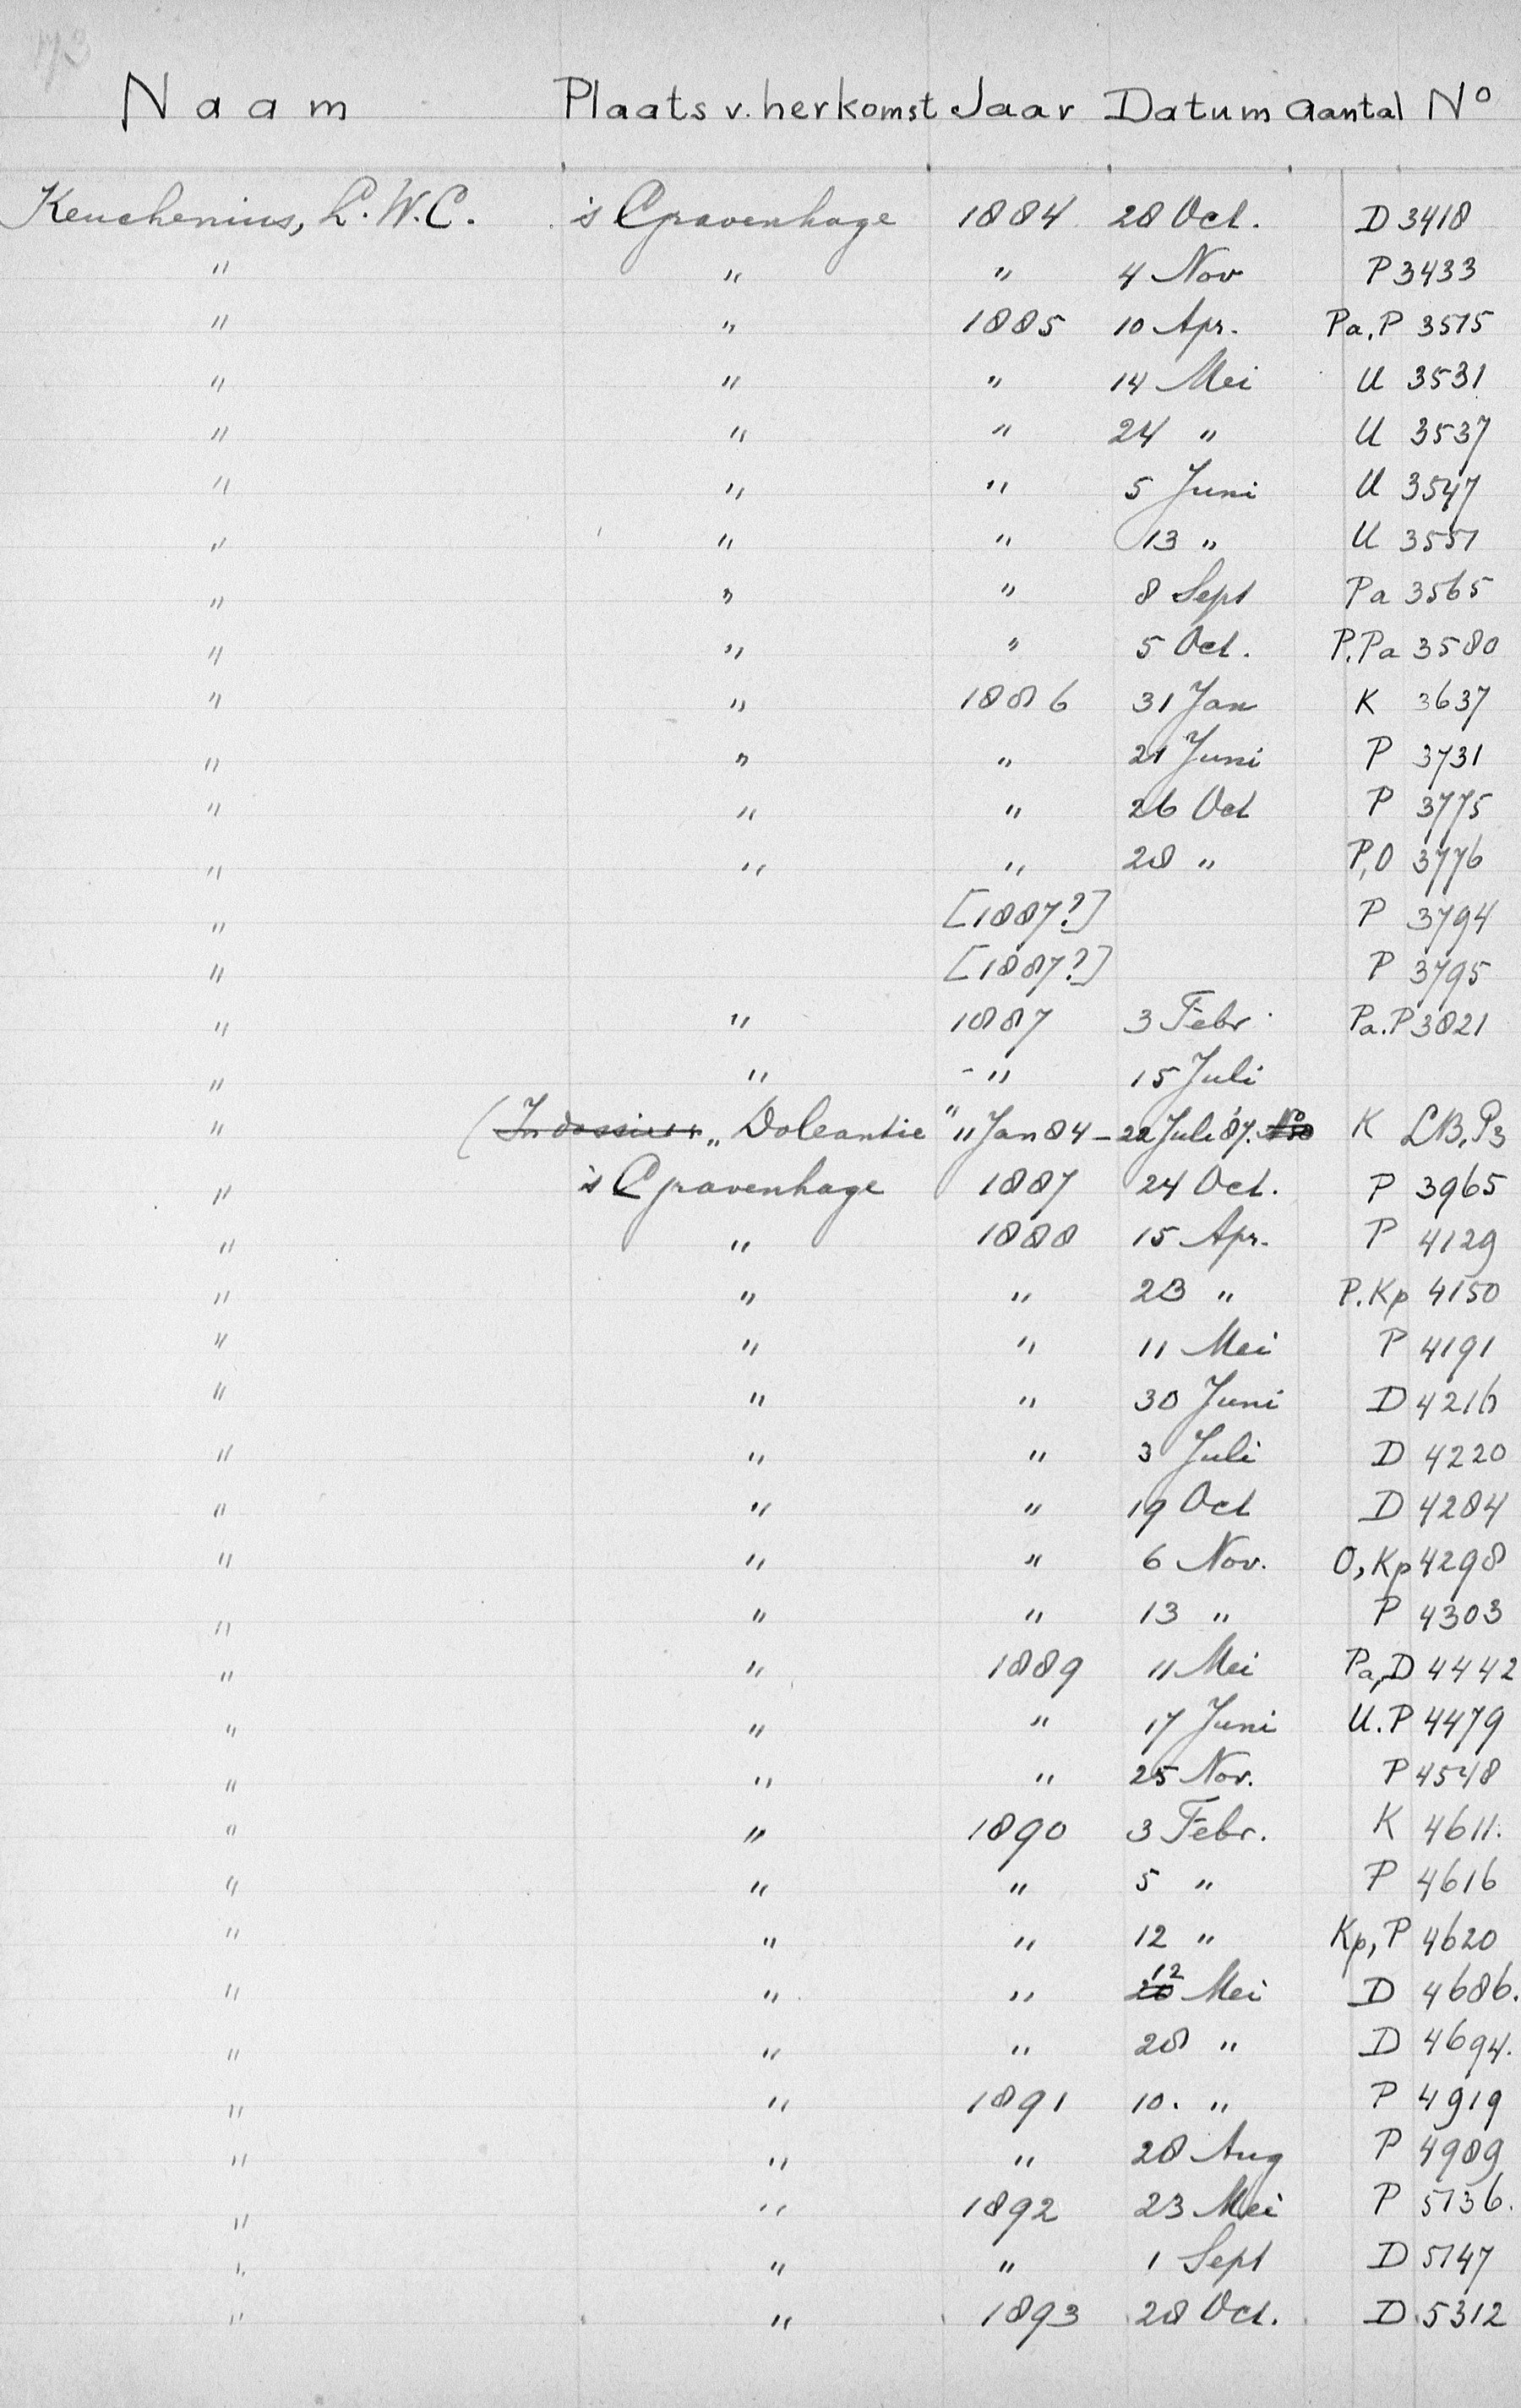 173
Naam Plaats v. herkomst Jaar Datum Aantal No
Keuchenius, L. W. C. 's Gravenhage 1884 28 Oct. D 3418
" " " 4 Nov P 3433
" " 1885 10 Apr. Pa, P 3515
" " " 14 Mei U 3531
" " " 24 " U 3537
" " " 5 Juni U 3547
" " " 13 " U 3551
" " " 8 Sept Pa 3565
" " " 5 Oct. P. Pa 3580
" " 1886 31 Jan K 3637
" " " 21 Juni P 3731
" " " 26 Oct P 3775
" " " 28 " P, O 3776
" [1887?] P 3794
" [1887?] P 3795
" " 1887 3 Febr. Pa. P 3821
" " " 15 Juli
" (In dossier „Doleantie" 11 Jan 84 - 22 Juli '87. No K LB, P3
" 's Gravenhage 1887 24 Oct. P 3965
" " 1888 15 Apr. P 4129
" " " 23 " P. Kp 4150
" " " 11 Mei P 4191
" " " 30 Juni D 4216
" " " 3 Juli D 4220
" " " 19 Oct D 4284
" " " 6 Nov. O, Kp 4298
" " " 13 " P 4303
" " 1889 11 Mei Pa, D 4442
" " " 17 Juni U. P 4479
" " " 25 Nov. P 4548
" " 1890 3 Febr. K 4611.
" " " 5 " P 4616
" " " 12 " Kp, P 4620
" " " 12 Mei D 4686.
" " " 28 " D 4694.
" " 1891 10. " P 4919
" " " 28 Aug P 4989
" " 1892 23 Mei P 5136.
" " " 1 Sept D 5147
" " 1893 28 Oct. D 5312